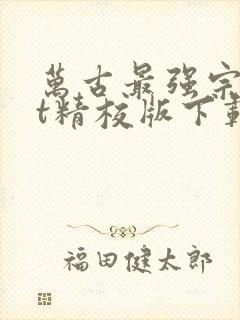 萬古最强宗
t精校版下載
福田健太郎